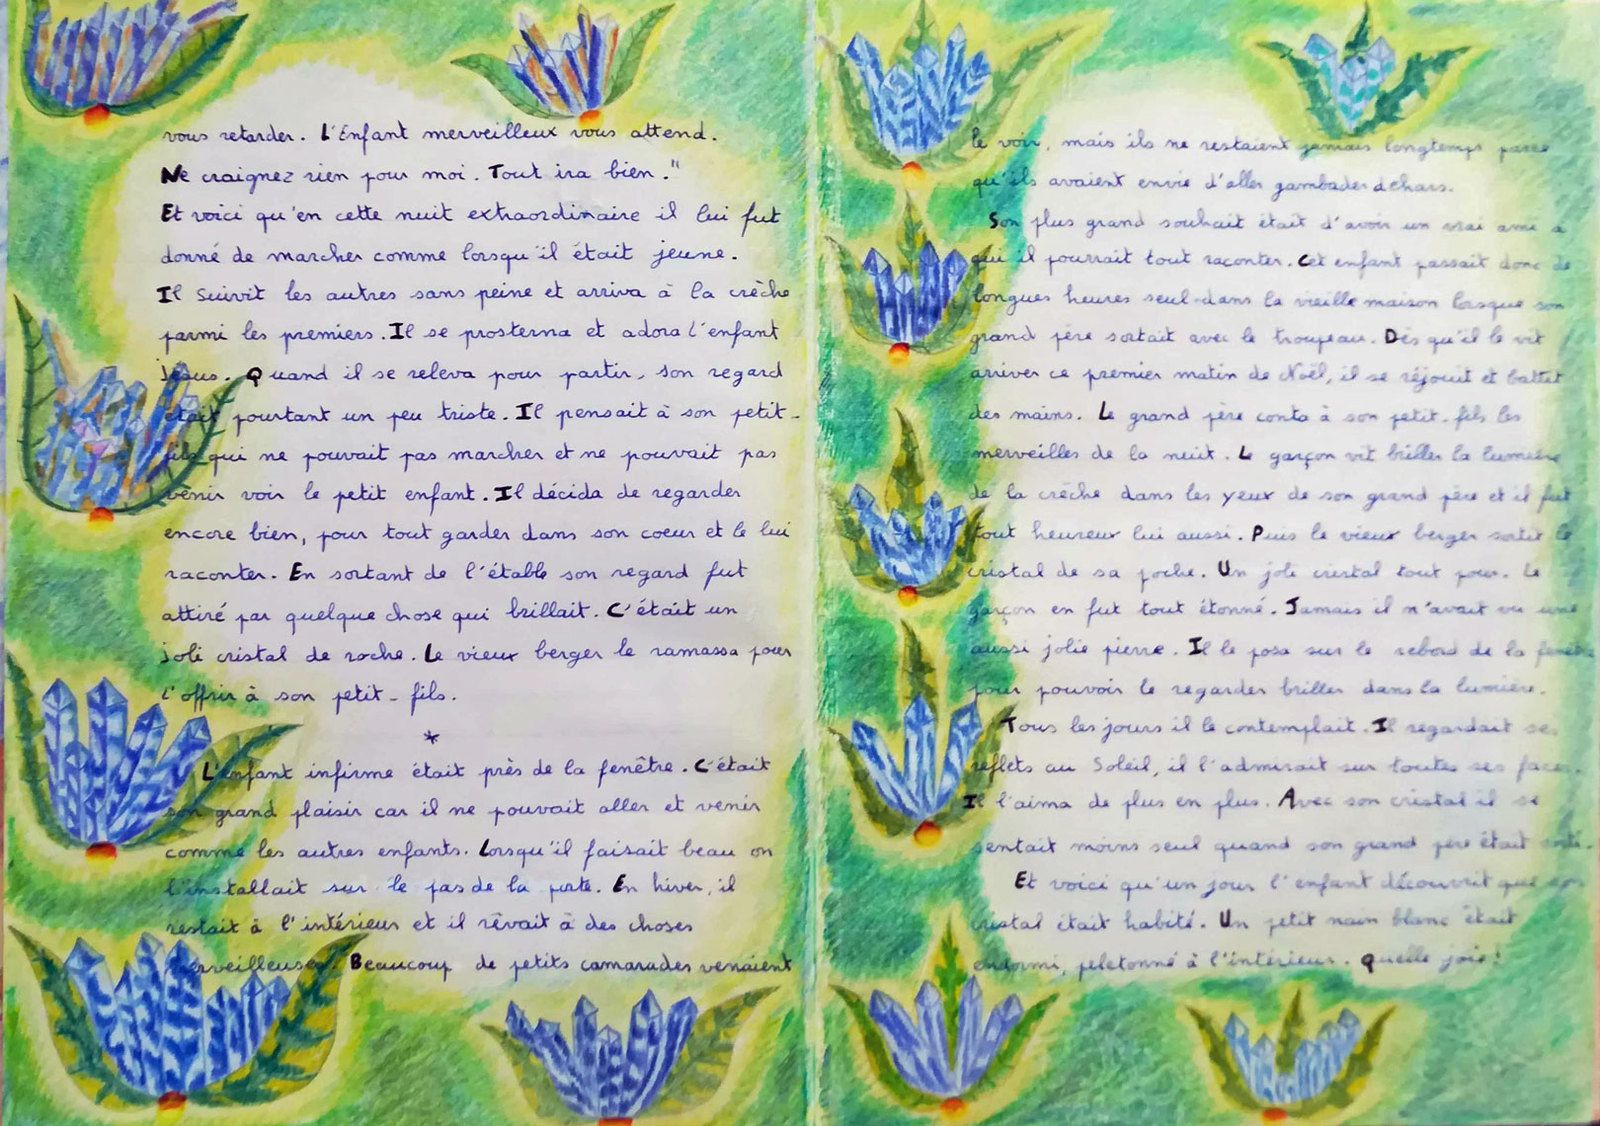 vous retarder. L'Enfant merveilleux vous attend.
Ne craignez rien pour moi. Tout ira bien."
Et voici qu'en cette nuit extraordinaire il lui fut
donné de marcher comme lorsqu'il était jeune.
Il suivit les autres sans peine et arriva à la crèche
parmi les premiers. Il se prosterna et adora l'enfant
Jésus. Quand il se releva pour partir, son regard
était pourtant un peu triste. Il pensait à son petit-
fils qui ne pouvait pas marcher et ne pouvait pas
venir voir le petit enfant. Il décida de regarder
encore bien, pour tout garder dans son coeur et le lui
raconter. En sortant de l'étable son regard fut
attiré par quelque chose qui brillait. C'était un
joli cristal de roche. Le vieux berger le ramassa pour
l'offrir à son petit-fils.
*
L'enfant infirme était près de la fenêtre. C'était
son grand plaisir car il ne pouvait aller et venir
comme les autres enfants. Lorsqu'il faisait beau on
l'installait sur le pas de la porte. En hiver, il
restait à l'intérieur et il rêvait à des choses
merveilleuses. Beaucoup de petits camarades venaient
le voir, mais ils ne restaient jamais longtemps parce
qu'ils avaient envie d'aller gambader dehors.
Son plus grand souhait était d'avoir un vrai ami à
qui il pourrait tout raconter. Cet enfant passait donc de
longues heures seul dans la vieille maison lorsque son
grand père sortait avec le troupeau. Dès qu'il le vit
arriver ce premier matin de Noël, il se réjouit et battit
des mains. Le grand père conta à son petit-fils les
merveilles de la nuit. Le garçon vit briller la lumière
de la crèche dans les yeux de son grand père et il fut
tout heureux lui aussi. Puis le vieux berger sortit le
cristal de sa poche. Un joli cristal tout pur. Le
garçon en fut tout étonné. Jamais il n'avait vu une
aussi jolie pierre. Il le posa sur le rebord de la fenêtre
pour pouvoir le regarder briller dans la lumière.
Tous les jours il le contemplait. Il regardait ses
reflets au Soleil, il l'admirait sur toutes ses faces.
Il l'aima de plus en plus. Avec son cristal il se
sentait moins seul quand son grand père était sorti.
Et voici qu'un jour l'enfant découvrit que son
cristal était habité. Un petit nain blanc était
endormi, peletonné à l'intérieur. Quelle joie!